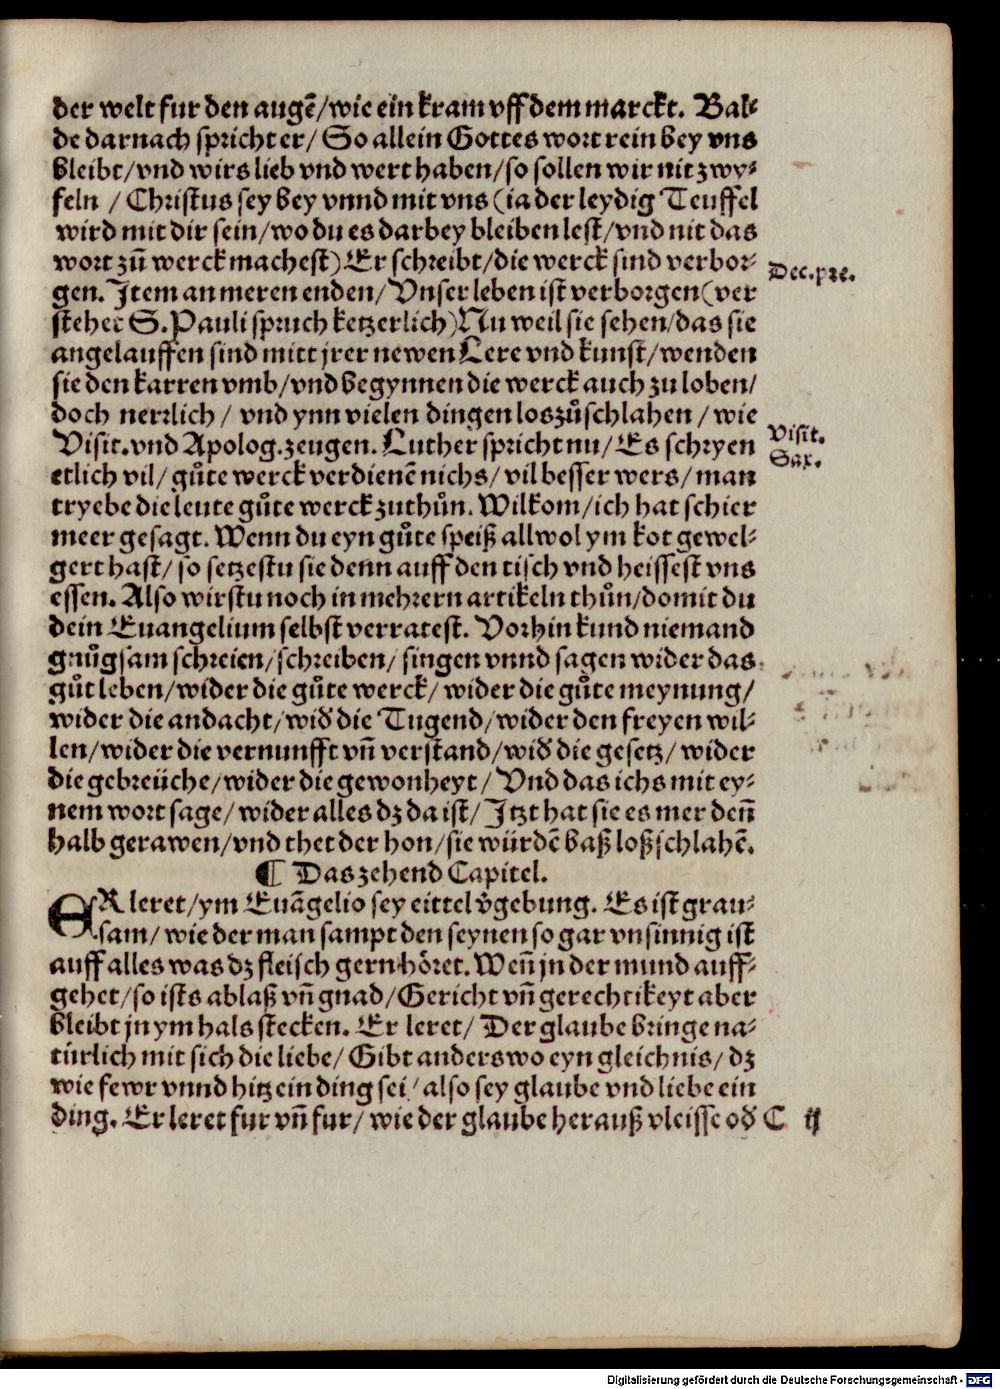 der welt fur den augē/wie ein kram vff dem marckt. Bal⸗
de darnach spricht er/ So allein Gottes wort rein bey vns
bleibt/vnd wirs lieb vnd wert haben/so sollen wir nit zwy⸗
feln / Christus sey bey vnnd mit vns (ia der leydig Teuffel
wird mit dir sein/wo du es darbey bleiben lest/vnd nit das
wort zū werck machest) Er schreibt/die werck sind verbor⸗
gen. Item an meren enden/ Vnser leben ist verborgen (ver
Dec.pre.
stehet S. Pauli spruch ketzerlich) Nu weil sie sehen/das sie
angelauffen sind mitt jrer newen Lere vnd kunst/wenden
sie den karren vmb/vnd begynnen die werck auch zu loben/
doch nerrlich/ vnd ynn vielen dingen loszůschlahen/wie
Visit.vnd Apolog.zeugen. Luther spricht nu/ Es schryen
Visit.
Sax.
etlich vil/ gůte werck verdienē nichs/ vil besser wers/ man
tryebe die leute gůte werck zuthůn. Wilkom/ich hat schier
meer gesagt. Wenn du eyn gůte speiß allwol ym kot gewel⸗
gert hast/ so setzestu sie denn auff den tisch vnd heissest vns
essen. Also wirstu noch in mehrern artikeln thůn/domit du
dein Euangelium selbst verratest. Vorhin kund niemand
gnůgsam schreien/schreiben/ singen vnnd sagen wider das
gůt leben/wider die gůte werck/ wider die gůte meynung/
wider die andacht/wiď die Tugend/wider den freyen wil⸗
len/wider die vernunfft vñ verstand/wiď die gesetz/ wider
die gebreüche/wider die gewonheyt/ Vnd das ichs mit ey⸗
nem wort sage/ wider alles dz da ist/ Itzt hat sie es mer deñ
halb gerawen/vnd thet der hon/sie würdē baß loßschlahē.
¶ Das zehend Capitel.
ER leret/ym Euāgelio sey eittel v̊gebung. Es ist grau⸗
sam/ wie der man sampt den seynen so gar vnsinnig ist
auff alles was dz fleisch gern höret. Weñ jn der mund auff⸗
gehet/so ists ablaß vñ gnad/Gericht vñ gerechtikeyt aber
bleibt jn ym hals stecken. Er leret/ Der glaube bringe na⸗
türlich mit sich die liebe/ Gibt anderswo eyn gleichnis/ dz
wie fewr vnnd hitz ein ding sei/ also sey glaube vnd liebe ein
ding. Er leret fur vñ fur/ wie der glaube herauß vleisse oď
C ij
Digitalisierung gefördert durch die Deutsche Forschungsgemeinschaft - DFG